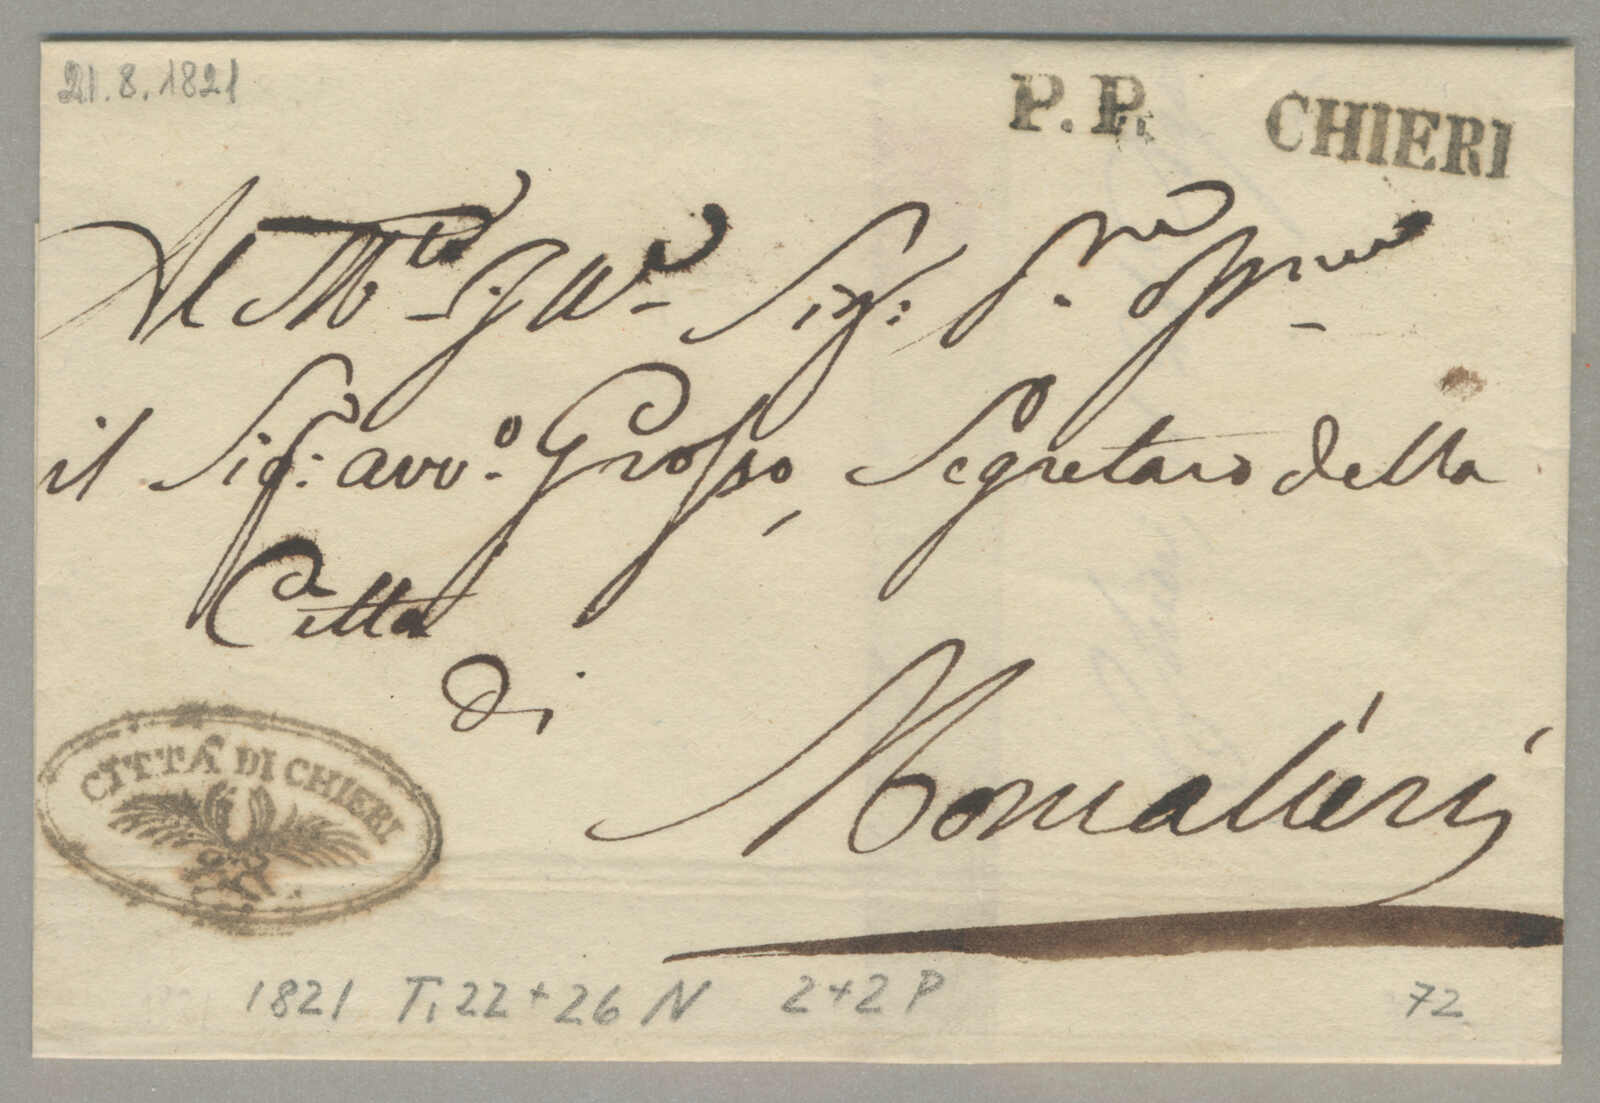 21.8.1821
P.P. CHIERI
Al M.to Ill.re Sig: P.ne
il Sig: avv.o Grosso, Segretaro della
Citta
di
Moncalieri
CITTÀ DI CHIERI
1821 Ti 22 + 26 N 2+2 P 72